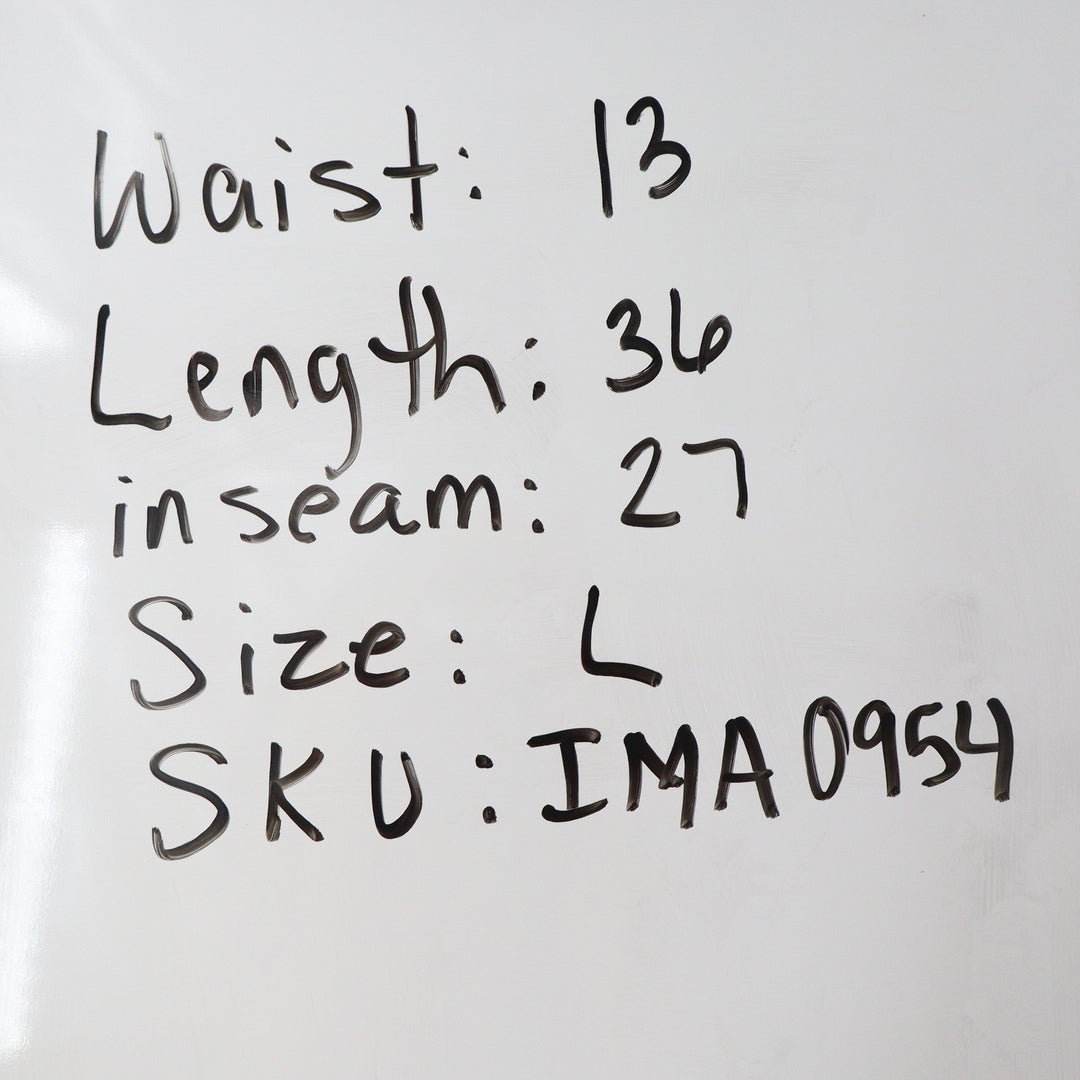 Waist: 13
Length: 36
inseam: 27
Size: L
SKU: IMA0954